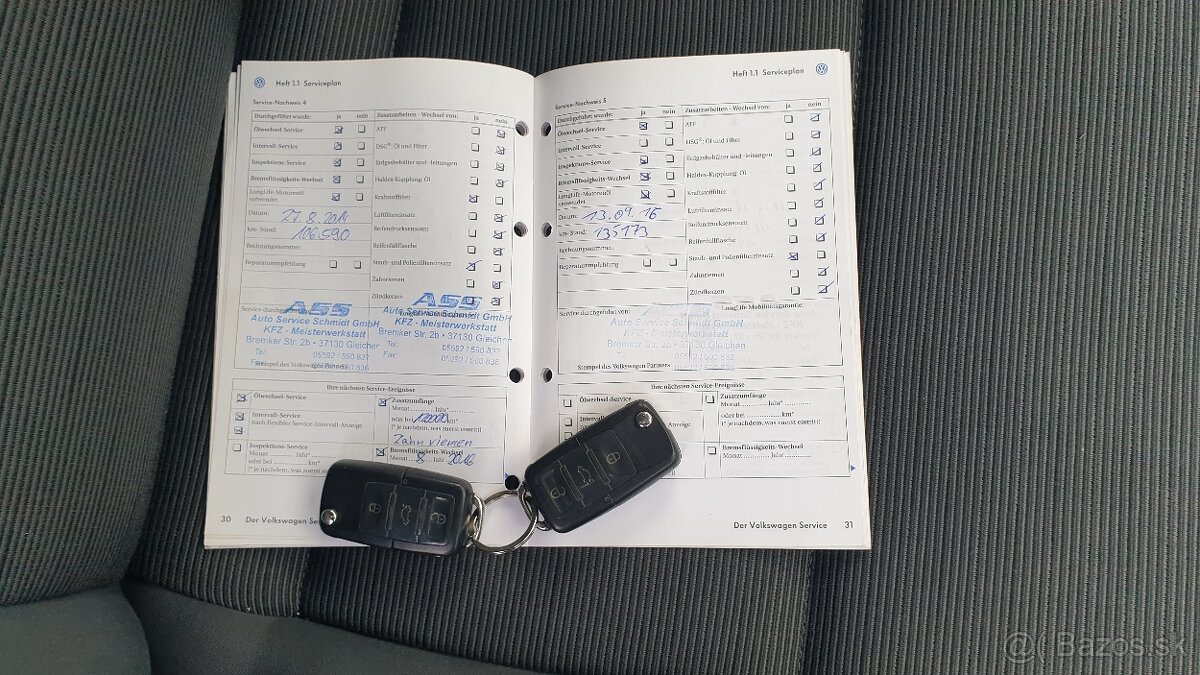 Heft 1.1 Serviceplan
Service-Nachweis 4
Durchgeführt wurde: ja nein
Ölwechsel-Service
Intervall-Service
Inspektions-Service
Bremsflüssigkeits-Wechsel
LongLife-Motorenöl
verwendet
Datum: 27.8.2014
km-Stand: 106.590
Rechnungsnummer:
Reparaturempfehlung
Zusatzarbeiten - Wechsel von: ja nein
ATF
DSG®-Öl und Filter
Erdgasbehälter und -leitungen
Haldex-Kupplung: Öl
Kraftstofffilter
Luftfiltereinsatz
Reifendrucksensoren
Reifenfüllflasche
Staub- und Pollenfiltereinsatz
Zahnriemen
Zündkerzen
Service durchgeführt
ASS
Auto Service Schmidt GmbH
KFZ - Meisterwerkstatt
Bremker Str. 2b • 37130 Gleichen
Tel: 05592 / 590 837
05592 / 590 836
Stempel des Volkswagen Partners
ASS
Auto Service Schmidt GmbH
KFZ - Meisterwerkstatt
Bremker Str. 2b • 37130 Gleichen
Tel: 05592 / 590 837
Fax: 05592 / 590 836
Ihre nächsten Service-Ereignisse
Ölwechsel-Service
Intervall-Service
nach flexibler Service-Intervall-Anzeige
Inspektions-Service
Monat Jahr*
oder bei km*
(* je nachdem, was zuerst eintritt)
Zusatzumfänge
Monat Jahr*
oder bei 120000 km*
(* je nachdem, was zuerst eintritt)
Zahnriemen
Bremsflüssigkeits-Wechsel
Monat 8 Jahr 2016
30 Der Volkswagen Se
Heft 1.1 Serviceplan
Service-Nachweis 5
Durchgeführt wurde: ja nein
Ölwechsel-Service
Intervall-Service
Inspektions-Service
Bremsflüssigkeits-Wechsel
LongLife-Motorenöl
verwendet
Datum: 13.09.16
km-Stand: 135173
Rechnungsnummer:
Reparaturempfehlung
Zusatzarbeiten - Wechsel von: ja nein
ATF
DSG®-Öl und Filter
Erdgasbehälter und -leitungen
Haldex-Kupplung: Öl
Kraftstofffilter
Luftfiltereinsatz
Reifendrucksensoren
Reifenfüllflasche
Staub- und Pollenfiltereinsatz
Zahnriemen
Zündkerzen
Service durchgeführt von:
LongLife Mobilitätsgarantie:
Auto Service Schmidt GmbH
KFZ - Meisterwerkstatt
Bremker Str. 2b • 37130 Gleichen
05592 / 590 837
05592 / 590 836
Stempel des Volkswagen Partners
Ihre nächsten Service-Ereignisse
Ölwechsel-Service
Intervall-Service
Anzeige
Zusatzumfänge
Monat Jahr*
oder bei km*
(* je nachdem, was zuerst eintritt)
Bremsflüssigkeits-Wechsel
Monat Jahr
Der Volkswagen Service 31
@( Bazos.sk